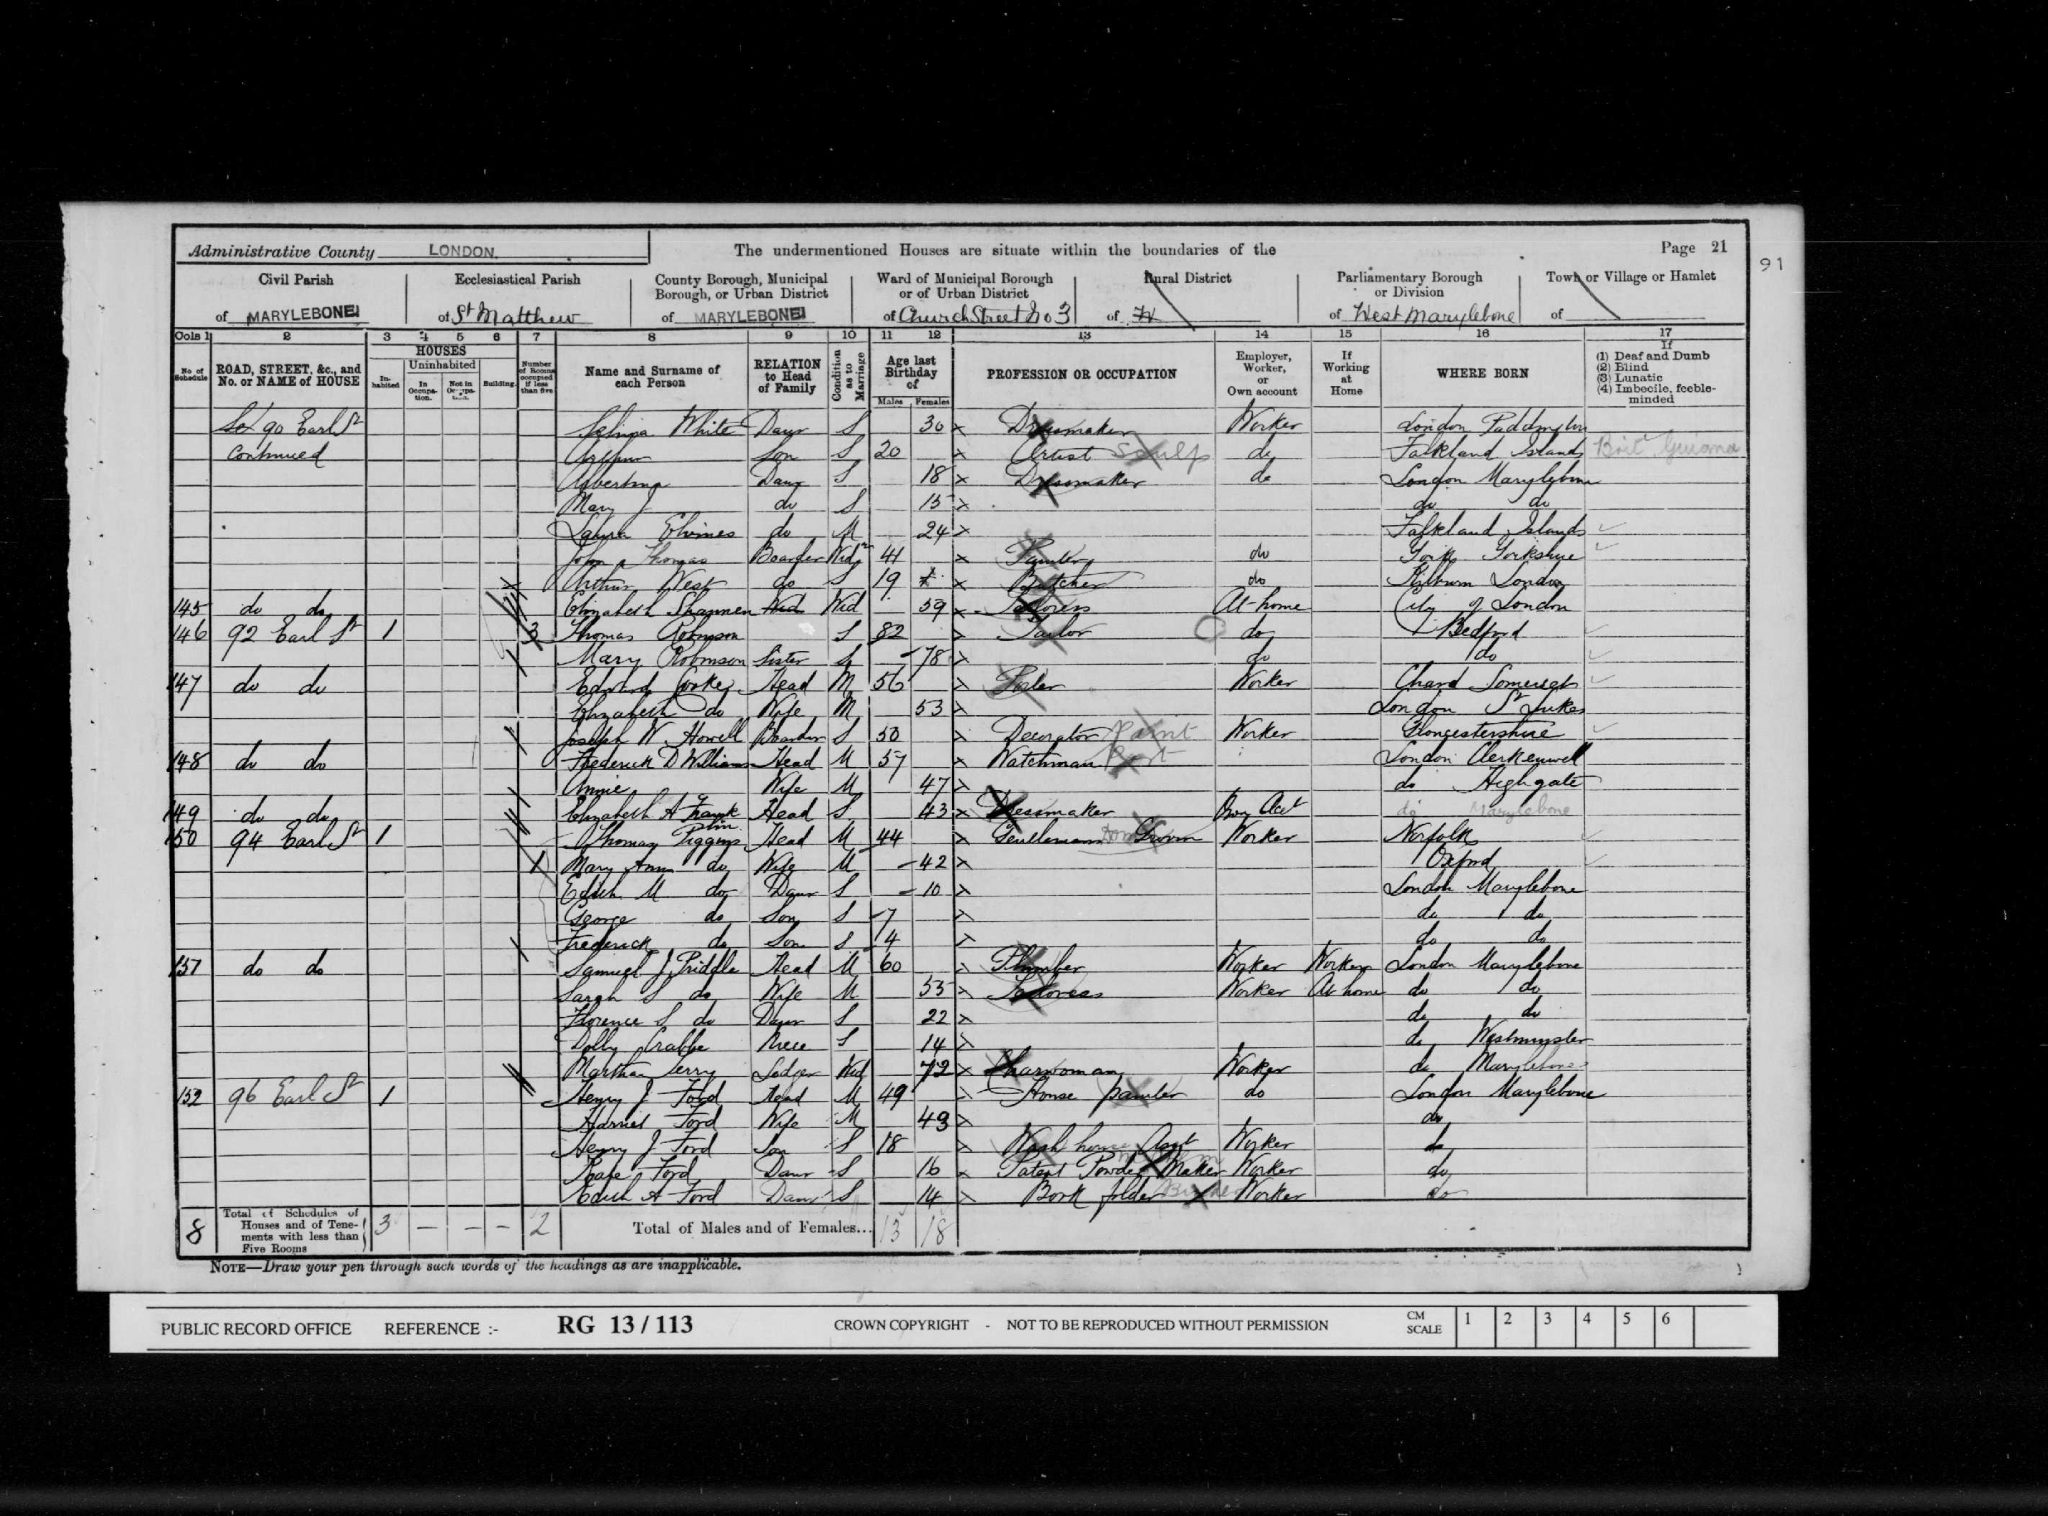 Administrative County LONDON.
The undermentioned Houses are situate within the boundaries of the
Page 21
91
Civil Parish
of MARYLEBONE
Ecclesiastical Parish
of St Matthew
County Borough, Municipal
Borough, or Urban District
of MARYLEBONE
Ward of Municipal Borough
or of Urban District
of Church Street No 3
Rural District
of
Parliamentary Borough
or Division
of West Marylebone
Town or Village or Hamlet
of
Cols 1 2 3 4 5 6 7 8 9 10 11 12 13 14 15 16 17
No. of Schedule
ROAD, STREET, &c., and
No. or NAME of HOUSE
HOUSES
Inhabited
Uninhabited
In Occupation.
Not in Occupation.
Building.
Number of Rooms occupied if less than five
Name and Surname of
each Person
RELATION
to Head
of Family
Condition as to Marriage
Age last
Birthday
of
Males Females
PROFESSION OR OCCUPATION
Employer,
Worker,
or
Own account
If
Working
at
Home
WHERE BORN
If
(1) Deaf and Dumb
(2) Blind
(3) Lunatic
(4) Imbecile, feeble-
minded
90 Earl St Selina White Daur S 30 Dressmaker Worker London Paddington
Continued Arthur Son S 20 Artist Sculp do Falkland Islands Brit Guiana
Albertina Daur S 18 Dressmaker do London Marylebone
Mary J do S 15 do do
Laura do M 24 Falkland Islands
John Thomas Boarder Widr 41 do York Yorkshire
Arthur West do S 19 Butcher do Kilburn London
145 do do Elizabeth Shannen Wid Wid 59 Tailoress At home City of London
146 92 Earl St 1 3 Thomas Robinson S 82 Tailor do Bedford
Mary Robinson Sister S 78 do do
147 do do Edward Head M 56 Worker Chard Somerset
Elizabeth do Wife M 53 London St Lukes
Joseph W Howell Boarder S 50 Decorator Paint Worker Gloucestershire
148 do do Frederick D Williams Head M 57 Watchman London Clerkenwell
Annie Wife M 47 do Highgate
149 do do Elizabeth A Frank Head S 43 Dressmaker Own Acct do Marylebone
150 94 Earl St 1 Thomas Piggins Head M 44 Gentlemans Groom Worker Norfolk
Mary Ann do Wife M 42 Oxford
Edith M do Daur S 10 London Marylebone
George do Son S 7 do do
Frederick do Son S 4 do do
151 do do Samuel J Priddle Head M 60 Plumber Worker Worker London Marylebone
Sarah S do Wife M 55 Tailoress Worker At home do do
Florence S do Daur S 22 do do
Dolly Crabbe Niece S 14 do Westminster
Martha Terry Lodger Wid 72 Charwoman Worker do Marylebone
152 96 Earl St 1 Henry J Ford Head M 49 House painter do London Marylebone
Harriet Ford Wife M 49 do
Henry J Ford Son S 18 Wash house Asst Worker do
Kate Ford Daur S 16 Patent Powder Maker Worker do
Edith A Ford Daur S 14 Book folder Worker do
8 Total of Schedules of
Houses and of Tene-
ments with less than
Five Rooms
3 — — — 2 Total of Males and of Females... 13 18
NOTE—Draw your pen through such words of the headings as are inapplicable.
PUBLIC RECORD OFFICE REFERENCE :- RG 13 / 113 CROWN COPYRIGHT - NOT TO BE REPRODUCED WITHOUT PERMISSION CM SCALE 1 2 3 4 5 6